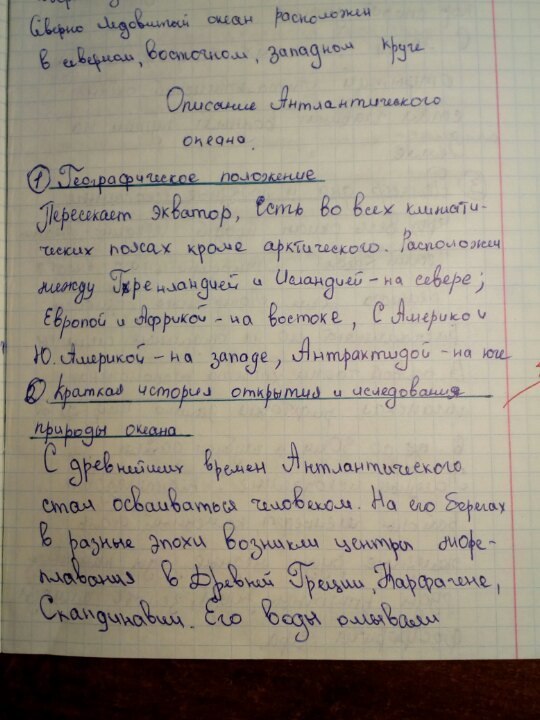 Северно Ледовитый океан расположен
в северном, восточном, западном круге
Описание Антлантического
океана.
1 Географическое положение
Пересекает экватор, Есть во всех климати-
ческих поясах кроме арктического. Расположен
между Гренландией и Исландией - на севере;
Европой и Африкой - на востоке, С Америко и
Ю. Америкой - на западе, Антрактидой - на юге
2 Краткая история открытия и иследования
природы океана
С древнейших времен Антлантического
стал осваиваться человеком. На его берегах
в разные эпохи возникли центры море-
плавания в Древней Греции, Карфагене,
Скандинавии. Его воды омывали